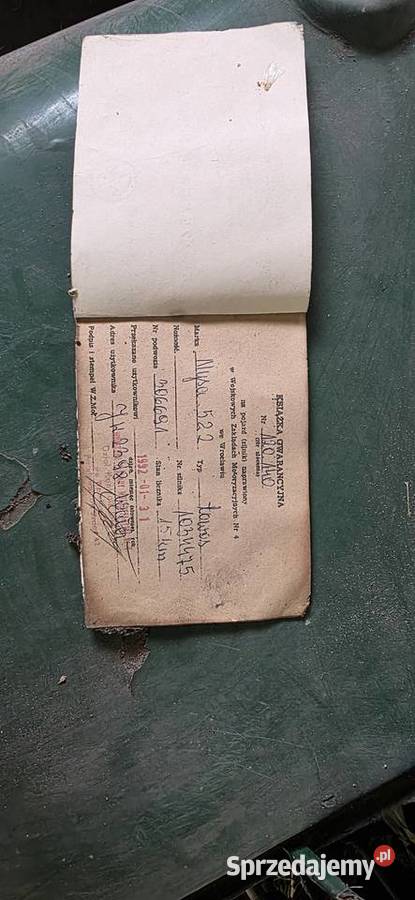 KSIĄŻKA GWARANCYJNA
Nr 120/140
(Nr zlecenia)
na pojazd (silnik) naprawiony
w Wojskowych Zakładach Motoryzacyjnych Nr 4
we Wrocławiu
Marka Nysa 522 Typ towos
Nośność Nr silnika 1034475
Nr podwozia 306691 Stan licznika 15 km
Przekazane użytkownikowi 1992 -01- 3 1
Adres użytkownika
Podpis i stempel W.Z.Mot.
Sprzedajemy.pl